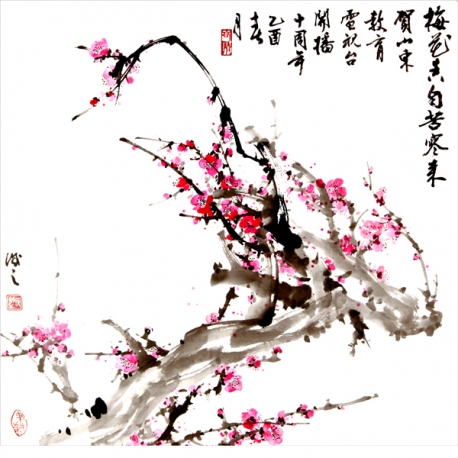 梅花香自苦寒来
贺山东
教育
电视台
開播
十周年
乙酉
春
月